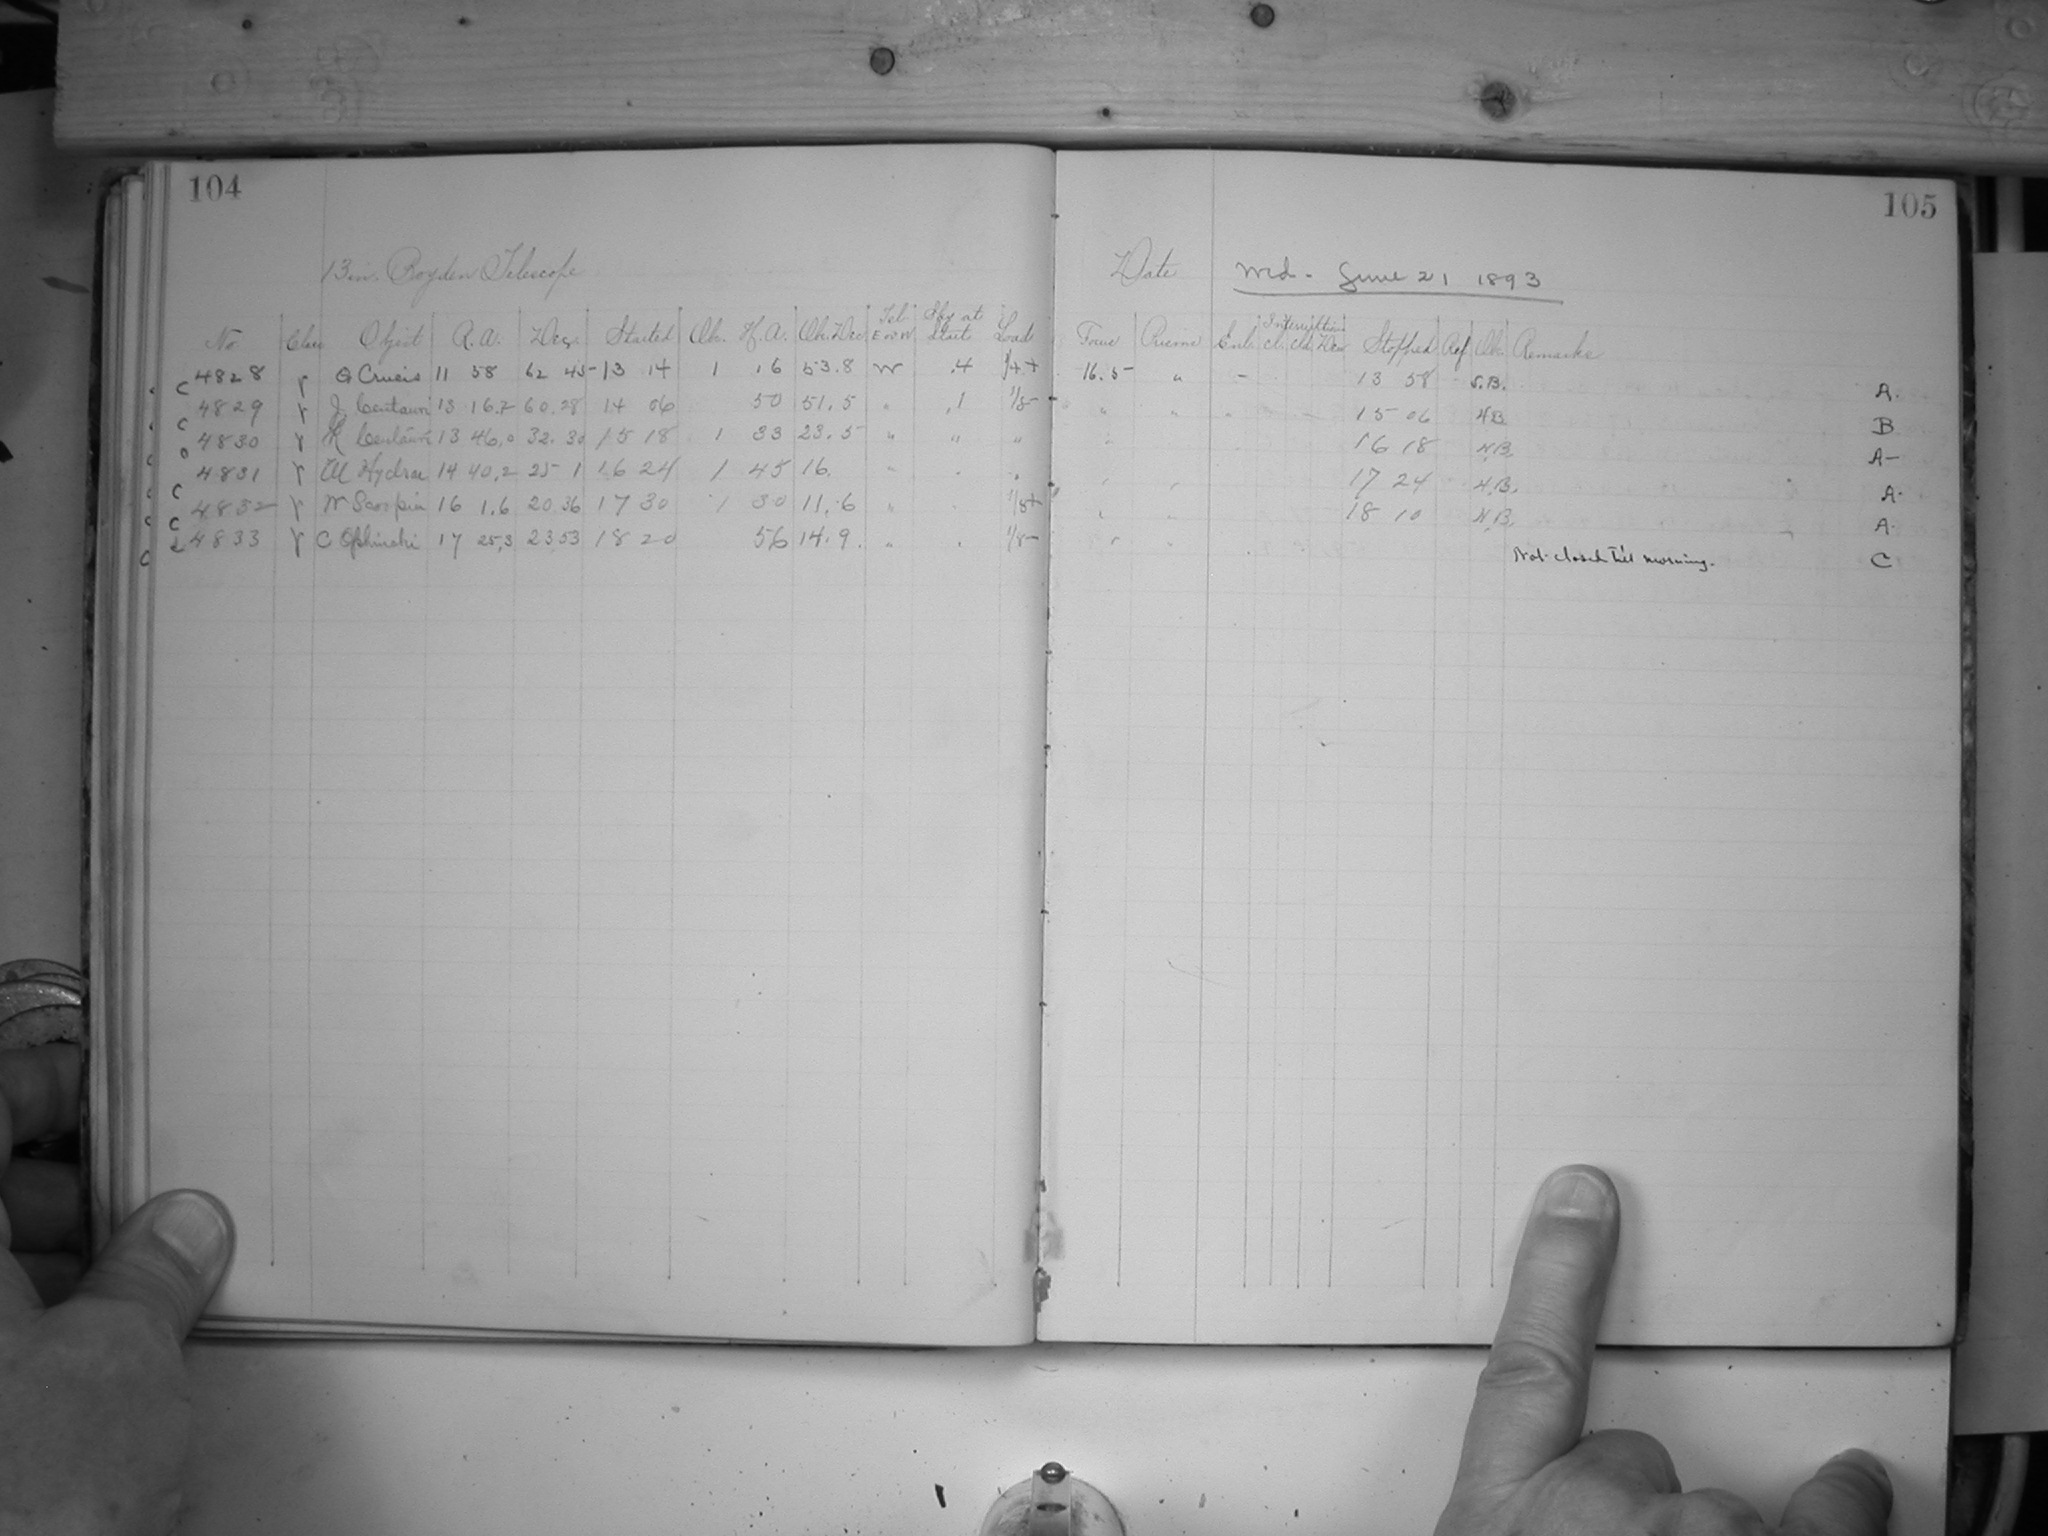 104
105
13 in. Boyden Telescope
Date Wed. June 21 1893
No. Class Object R.A. Dec. Started Ob. H.A. Ob. Dec. Tel. E or W Sky at Start Load Focus Prisms Interruptions Cl. Cld. Dew Stopped Ref. Ob. Remarks
C 4828 γ Crucis 11 58 62 45 13 14 1 16 53.8 W .4 16.5 " - 13 58 A.
C 4829 γ J. Centauri 13 16.2 60.28 14 06 50 51.5 " .1 1/8- " " 15 06 H.B. B
4830 γ R Centauri 13 46.0 32.30 15 18 1 33 23.5 " " " 16 18 H.B. A-
4831 γ W Hydrae 14 40.2 25 1 16 24 1 45 16. 17 24 H.B. A-
C 4832 γ W Scorpii 16 1.6 20.36 17 30 1 30 11.6 " 1/8+ 18 10 H.B. A-
4833 γ C Ophiuchi 17 25.3 23.53 18 20 56 14.9 " 1/8- Not closed till morning. C